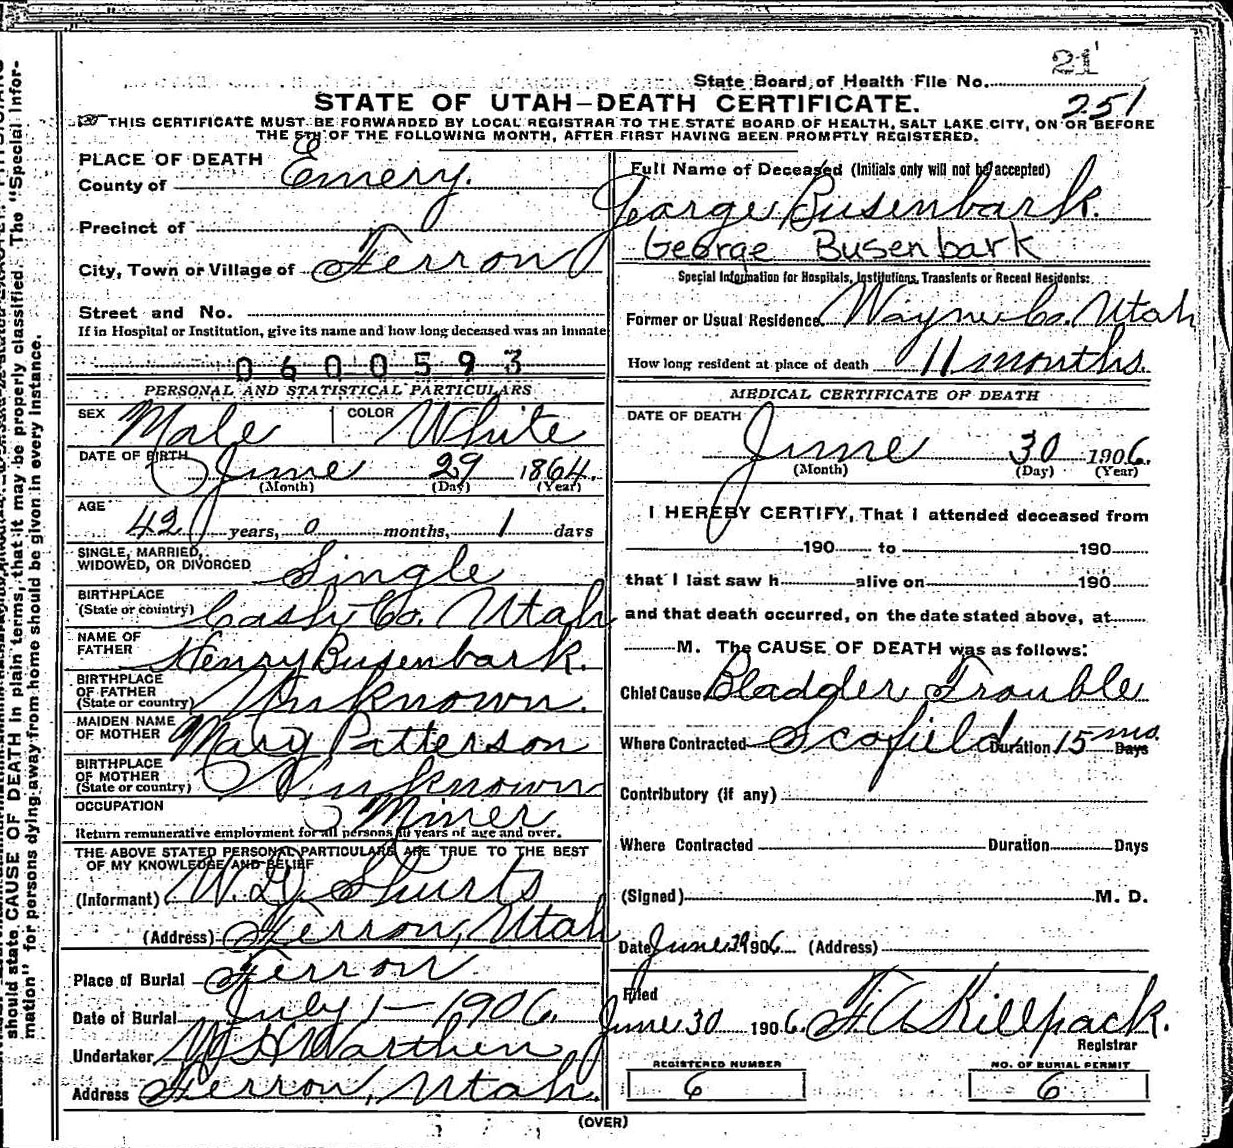 21
State Board of Health File No.
251
STATE OF UTAH—DEATH CERTIFICATE.
THIS CERTIFICATE MUST BE FORWARDED BY LOCAL REGISTRAR TO THE STATE BOARD OF HEALTH, SALT LAKE CITY, ON OR BEFORE
THE 5TH OF THE FOLLOWING MONTH, AFTER FIRST HAVING BEEN PROMPTLY REGISTERED.
PLACE OF DEATH
County of Emery.
Precinct of
City, Town or Village of Ferron
Street and No.
If in Hospital or Institution, give its name and how long deceased was an inmate
0600593
PERSONAL AND STATISTICAL PARTICULARS
SEX Male COLOR White
DATE OF BIRTH June 29 1864.
(Month) (Day) (Year)
AGE 42 years, 0 months, 1 days
SINGLE, MARRIED, WIDOWED, OR DIVORCED Single
BIRTHPLACE (State or country) Cash Co. Utah
NAME OF FATHER Henry Busenbark.
BIRTHPLACE OF FATHER (State or country) Unknown.
MAIDEN NAME OF MOTHER Mary Patterson
BIRTHPLACE OF MOTHER (State or country) Unknown
OCCUPATION Miner
Return remunerative employment for all persons 10 years of age and over.
THE ABOVE STATED PERSONAL PARTICULARS ARE TRUE TO THE BEST
OF MY KNOWLEDGE AND BELIEF
(Informant) W. D. Shurts
(Address) Ferron, Utah
Place of Burial Ferron.
Date of Burial July 1 - 1906.
Undertaker Warthen
Address Ferron, Utah.
Full Name of Deceased (Initials only will not be accepted)
George Busenbark.
George Busenbark
Special Information for Hospitals, Institutions, Transients or Recent Residents:
Former or Usual Residence Wayne Co. Utah
How long resident at place of death 11 months.
MEDICAL CERTIFICATE OF DEATH
DATE OF DEATH
June 30 1906.
(Month) (Day) (Year)
I HEREBY CERTIFY, That I attended deceased from
190 to 190
that I last saw h alive on 190
and that death occurred, on the date stated above, at
M. The CAUSE OF DEATH was as follows:
Chief Cause Bladder Trouble
Where Contracted Scofield Duration 15 mo. Days
Contributory (if any)
Where Contracted Duration Days
(Signed) M. D.
Date June 30 1906 (Address)
Filed
June 30 1906. F A Killpack.
Registrar
REGISTERED NUMBER
6
NO. OF BURIAL PERMIT
6
(OVER)
should state CAUSE OF DEATH in plain terms, that it may be properly classified. The "Special Infor-
mation" for persons dying away from home should be given in every instance.